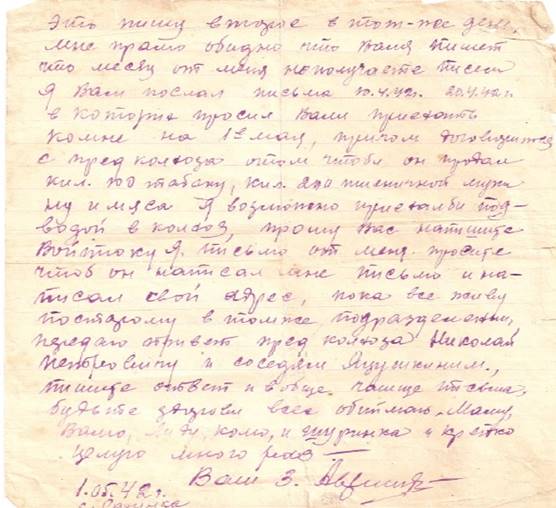 Это пишу второе в тот-же день,
мне прямо обидно что Валя пишет
что месяц от меня не получаете писем
я Вам послал письма 10.4.42г. 20.4.42г.
в которых просил Вали приехать
комне на 1е мая, причом договорится
с пред колхоза отом чтобы он продал
кил. 100 табаку, кил. 200 пшеничной муки
ну и мяса Я возможно приехалбы под-
водой в колхоз, прошу Вас напишите
Войтоку Я. письмо от меня. просите
чтоб он написал мне письмо и на-
писал свой адрес, пока все живу
постарому в томже подразделении,
передаю привет пред колхоза Николай
Петровичу и соседям
пишите ответ и вообще чаще письма,
будьте здоровы всех обнимаю. Машу,
Валю, Лиду, и Шуринка и крепко
целую много раз —
Ваш З.
1.05.42г.